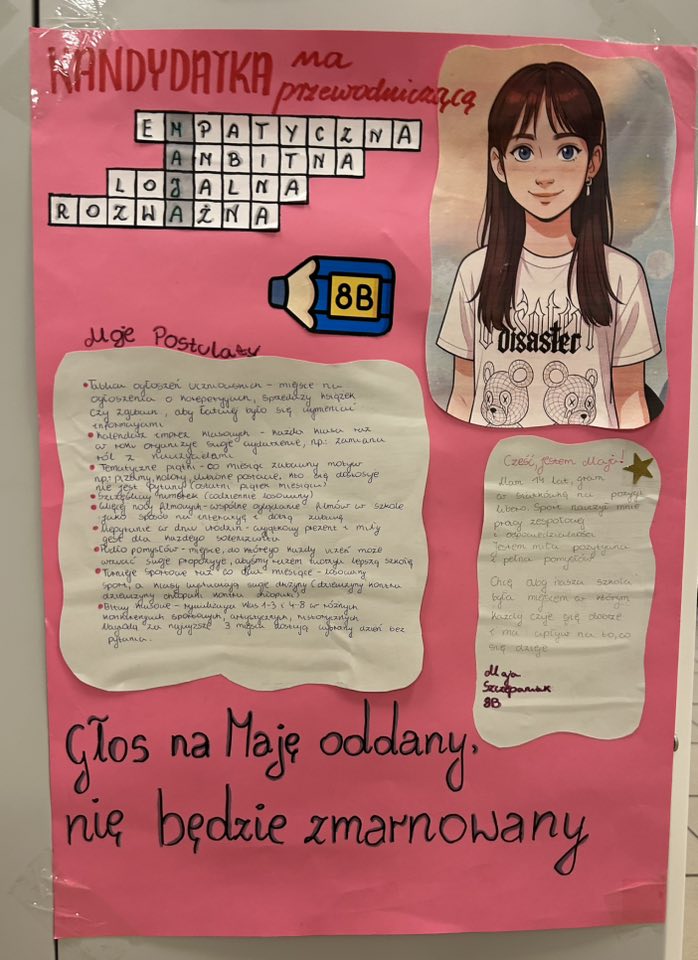 KANDYDATKA na
przewodniczącą
EMPATYCZNA
AMBITNA
LOJALNA
ROZWAŻNA
8B
disaster
Moje Postulaty
Tablica ogłoszeń uczniowskich - miejsce na
ogłoszenia o korepetycjach, sprzedaży książek
czy zgubach, aby łatwiej było się wymieniać
informacjami
Kalendarz imprez klasowych - każda klasa raz
w roku organizuje swoje wydarzenie, np: zamiana
ról z nauczycielami
Tematyczne piątki - co miesiąc zabawny motyw
np: przeimy, kolory, ulubione postacie, kto się dostosuje
nie jest pytany (ostatni piątek miesiąca)
Szczęśliwy numerek (codziennie losowany)
Więcej nocy filmowych - wspólne oglądanie filmów w szkole
jako sposób na integrację i dobrą zabawę
Niepytanie w dniu urodzin - wyjątkowy prezent i miły
gest dla każdego solenizanta
Pudło pomysłów - miejsce, do którego każdy uczeń może
wrzucić swoje propozycje, abyśmy razem tworzyli lepszą szkołę
Turnieje sportowe raz co dwa miesiące - losowany
sport, a klasy wystawiają swoje drużyny (dziewczyny kontra
dziewczyny chłopaki kontra chłopaki)
Bitwy klasowe - rywalizacja klas 1-3 i 4-8 w różnych
konkurencjach sportowych, artystycznych, historycznych
Nagrodą za najwyższe 3 miejsca dostają wybrany dzień bez
pytania.
Cześć, jestem Maja!
Mam 14 lat, gram
w siatkówkę na pozycji
libero. Sport nauczył mnie
pracy zespołowej
i odpowiedzialności
Jestem miła pozytywna
i pełna pomysłów
Chcę aby nasza szkoła
była miejscem w którym
każdy czuje się dobrze
i ma wpływ na to, co
się dzieje
Maja
Szczepaniak
8B
Głos na Maję oddany,
nię będzie zmarnowany